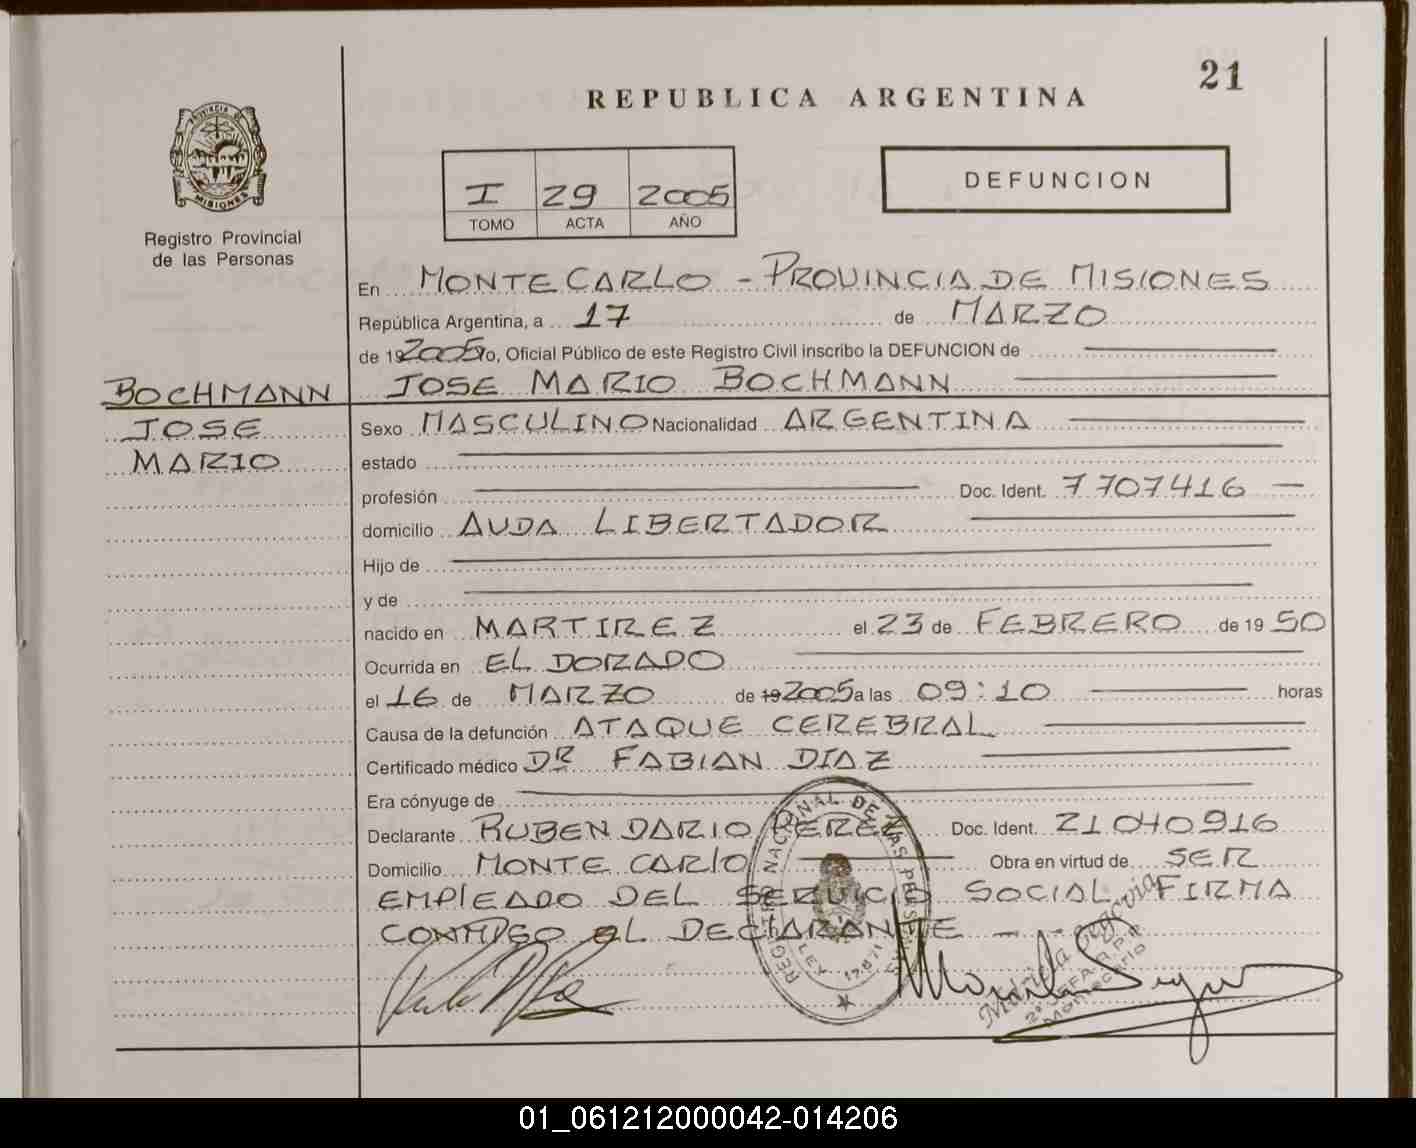 21
REPUBLICA ARGENTINA
PROVINCIA DE
MISIONES
Registro Provincial
de las Personas
I 29 2005
TOMO ACTA AÑO
DEFUNCION
En MONTECARLO - PROVINCIA DE MISIONES
República Argentina, a 17 de MARZO
de 192005 Yo, Oficial Público de este Registro Civil inscribo la DEFUNCION de
JOSE MARIO BOCHMANN
BOCHMANN
JOSE
MARIO
Sexo MASCULINO Nacionalidad ARGENTINA
estado
profesión Doc. Ident. 7707416
domicilio AVDA LIBERTADOR
Hijo de
y de
nacido en MARTIREZ el 23 de FEBRERO de 1950
Ocurrida en EL DORADO
el 16 de MARZO de 19 2005 a las 09:10 horas
Causa de la defunción ATAQUE CEREBRAL
Certificado médico DR FABIAN DIAZ
Era cónyuge de
Declarante RUBEN DARIO PEREZ Doc. Ident. 21040916
Domicilio MONTE CARLO Obra en virtud de SER
EMPLEADO DEL SERVICIO SOCIAL FIRMA
CONMIGO EL DECLARANTE - -
REGISTRO NACIONAL DE LAS PERSONAS
LEY 17.671
Mariela Segovia
Montecarlo
01_061212000042-014206